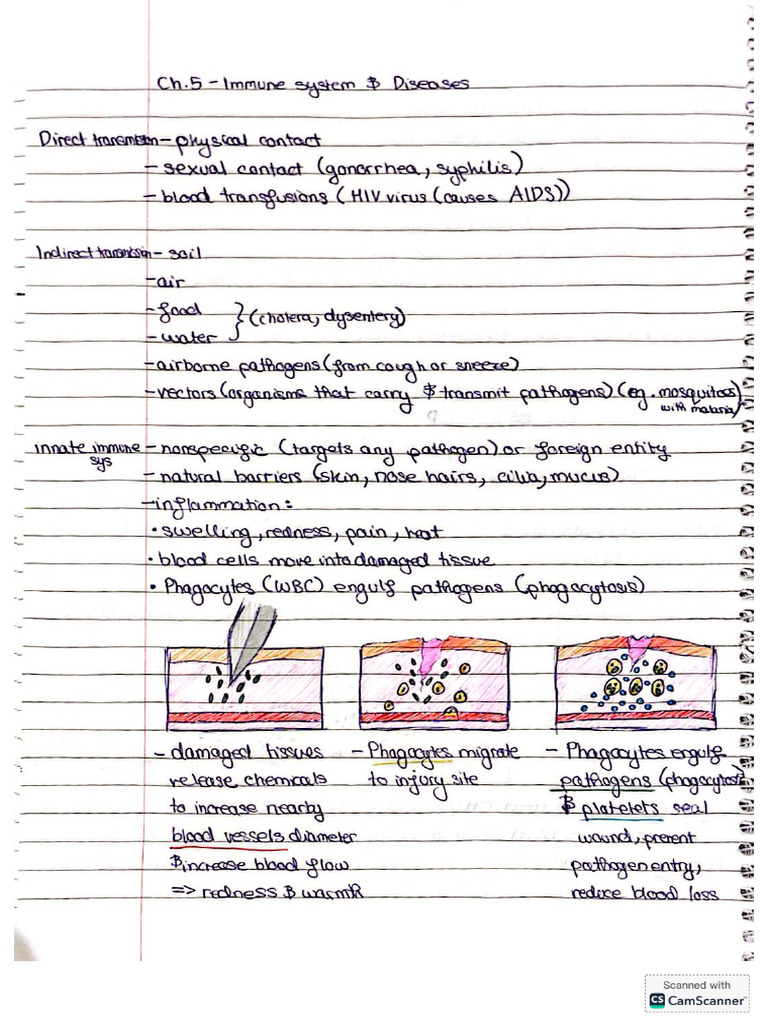 Ch.5 - Immune system & Diseases
Direct transmission - physical contact
- sexual contact (gonorrhea, syphilis)
- blood transfusions (HIV virus (causes AIDS))
Indirect transmission - soil
- air
- food
- water } (cholera, dysentery)
- airborne pathogens (from cough or sneeze)
- vectors (organisms that carry & transmit pathogens) (eg. mosquitos
with malaria)
innate immune - nonspecific (targets any pathogen) or foreign entity
sys
- natural barriers (skin, nose hairs, cilia, mucus)
- inflammation:
• swelling, redness, pain, heat
• blood cells move into damaged tissue
• Phagocytes (WBC) engulf pathogens (phagocytosis)
- damaged tissues
release chemicals
to increase nearby
blood vessels diameter
& increase blood flow
=> redness & warmth
- Phagocytes migrate
to injury site
- Phagocytes engulf
pathogens (phagocytosis)
& platelets seal
wound, prevent
pathogen entry,
reduce blood loss
Scanned with
CS CamScanner